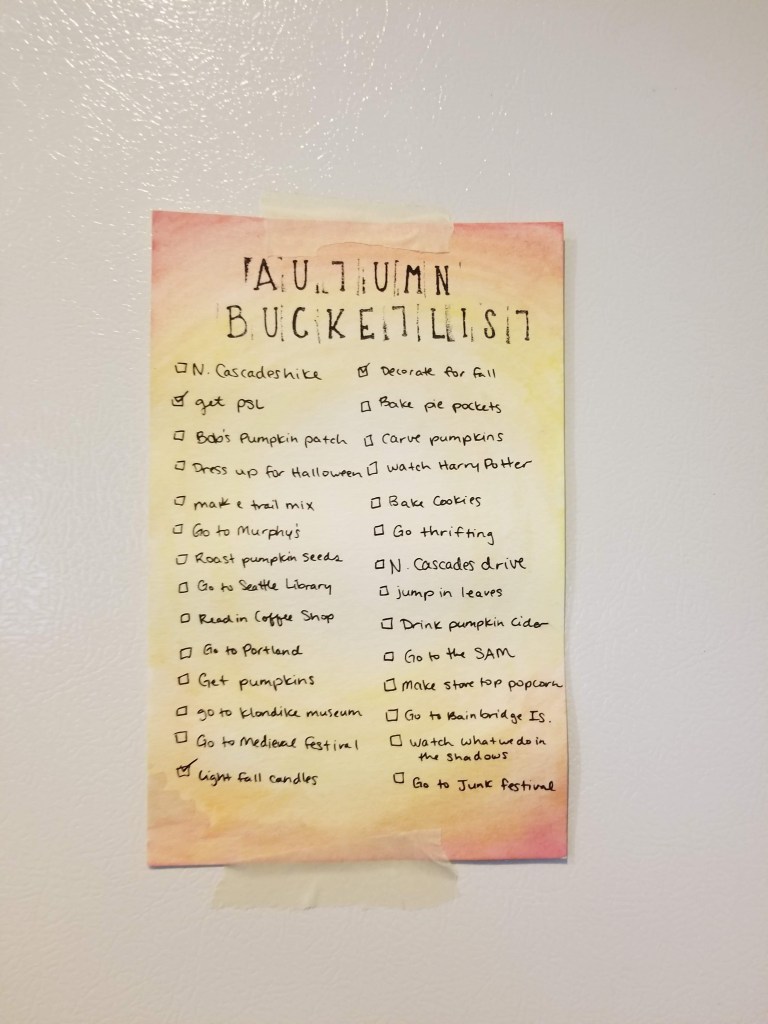 AUTUMN
BUCKETLIST
N. Cascades hike
get PSL
Bob's Pumpkin patch
Dress up for Halloween
make trail mix
Go to Murphy's
Roast pumpkin seeds
Go to Seattle Library
Read in Coffee Shop
Go to Portland
Get pumpkins
go to Klondike museum
Go to Medieval festival
light fall candles
Decorate for fall
Bake pie pockets
Carve pumpkins
watch Harry Potter
Bake Cookies
Go thrifting
N. Cascades drive
jump in leaves
Drink pumpkin cider
Go to the SAM
Make stove top popcorn
Go to Bainbridge Is.
watch what we do in
the shadows
Go to Junk festival